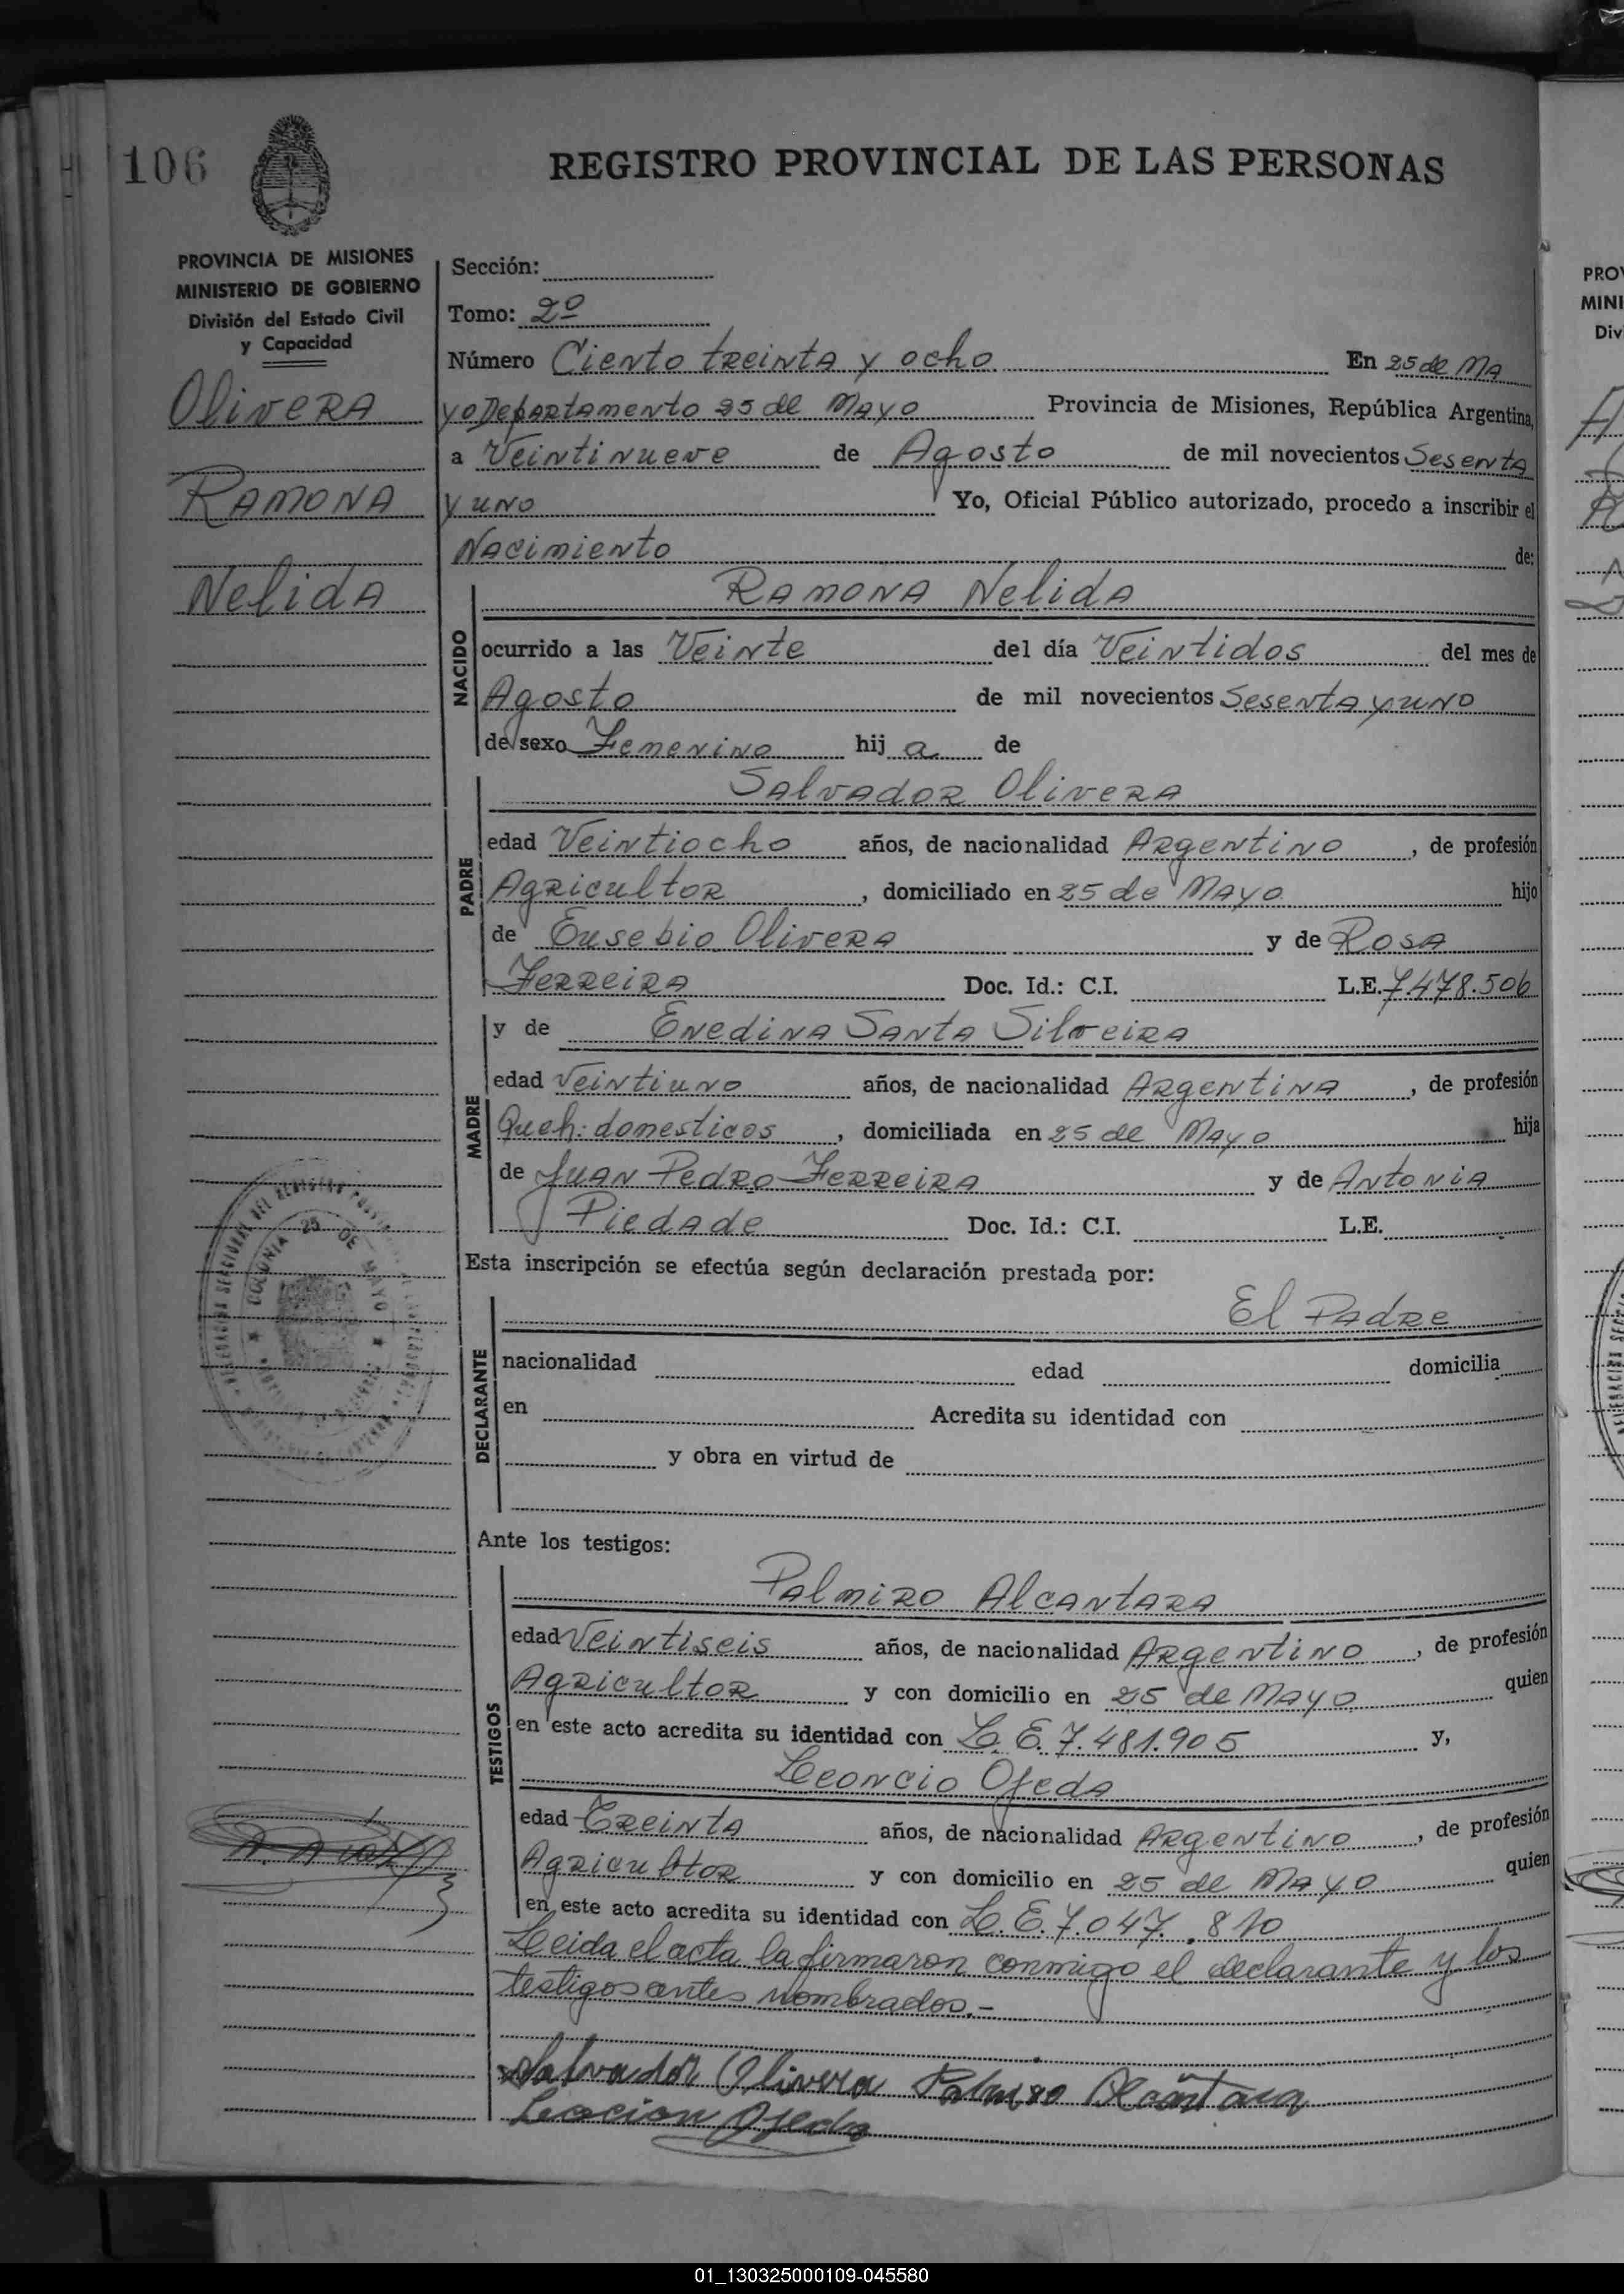 106
REGISTRO PROVINCIAL DE LAS PERSONAS
PROVINCIA DE MISIONES
MINISTERIO DE GOBIERNO
División del Estado Civil
y Capacidad
Olivera
Ramona
Nelida
Sección:
Tomo: 2º
Número Ciento treinta y ocho En 25 de Ma
yo Departamento 25 de Mayo Provincia de Misiones, República Argentina,
a Veintinueve de Agosto de mil novecientos Sesenta
y uno Yo, Oficial Público autorizado, procedo a inscribir el
Nacimiento de:
NACIDO
Ramona Nelida
ocurrido a las Veinte del día Veintidos del mes de
Agosto de mil novecientos Sesenta y uno
de sexo Femenino hij a de
PADRE
Salvador Olivera
edad Veintiocho años, de nacionalidad Argentino, de profesión
Agricultor, domiciliado en 25 de Mayo hijo
de Eusebio Olivera y de Rosa
Ferreira Doc. Id.: C.I. L.E. 7.478.506
MADRE
y de Enedina Santa Silveira
edad Veintiuno años, de nacionalidad Argentina, de profesión
Queh: domesticos, domiciliada en 25 de Mayo hija
de Juan Pedro Ferreira y de Antonia
Piedade Doc. Id.: C.I. L.E.
COLONIA 25 DE MAYO
Esta inscripción se efectúa según declaración prestada por:
DECLARANTE
El Padre
nacionalidad edad domicilia
en Acredita su identidad con
y obra en virtud de
Ante los testigos:
TESTIGOS
Palmiro Alcantara
edad Veintiseis años, de nacionalidad Argentino, de profesión
Agricultor y con domicilio en 25 de Mayo quien
en este acto acredita su identidad con L.E. 7.481.905 y,
Leoncio Ojeda
edad Treinta años, de nacionalidad Argentino, de profesión
Agricultor y con domicilio en 25 de Mayo quien
en este acto acredita su identidad con L.E. 7.047.810
Leida el acta la firmaron conmigo el declarante y los
testigos antes nombrados.-
Salvador Olivera Palmiro Alcantara
Ojeda
PRO
MINI
Div
01_130325000109-045580